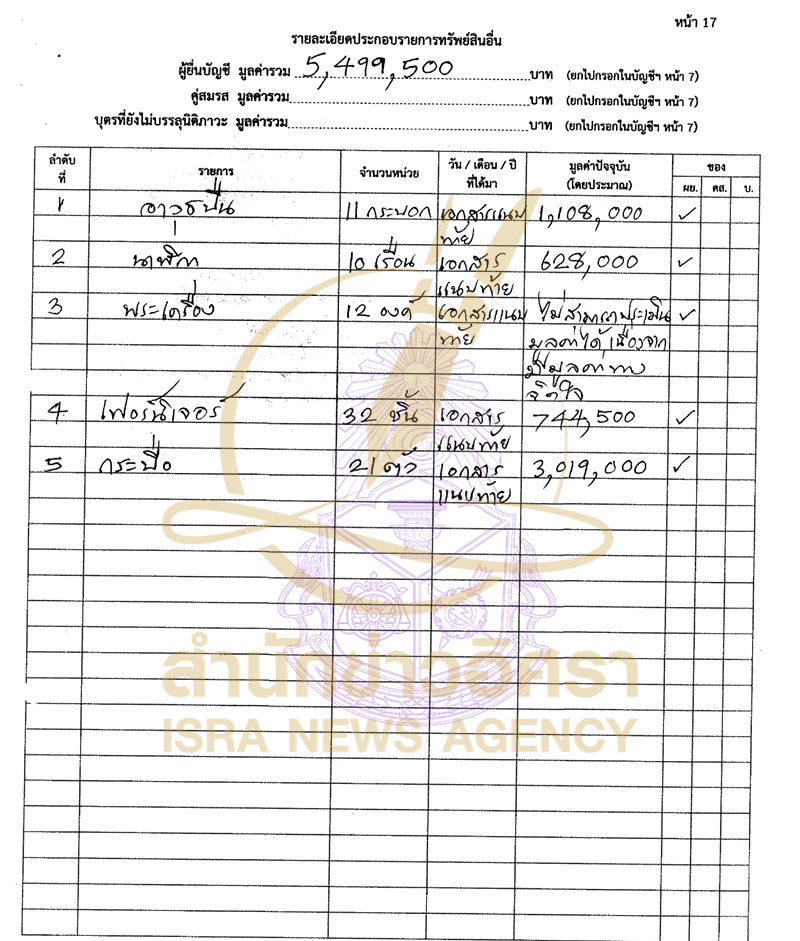 หน้า 17
รายละเอียดประกอบรายการทรัพย์สินอื่น
ผู้ยื่นบัญชี มูลค่ารวม 5,499,500 บาท (ยกไปกรอกในบัญชีฯ หน้า 7)
คู่สมรส มูลค่ารวม บาท (ยกไปกรอกในบัญชีฯ หน้า 7)
บุตรที่ยังไม่บรรลุนิติภาวะ มูลค่ารวม บาท (ยกไปกรอกในบัญชีฯ หน้า 7)
ลำดับที่ รายการ จำนวนหน่วย วัน / เดือน / ปี ที่ได้มา มูลค่าปัจจุบัน (โดยประมาณ) ของ
ผย. คส. บ.
1 อาวุธปืน 11 กระบอก เอกสารแนบ 1,108,000 ✓
ท้าย
2 นาฬิกา 10 เรือน เอกสาร 628,000 ✓
แนบท้าย
3 พระเครื่อง 12 องค์ เอกสารแนบ ไม่สามารถประเมิน ✓
ท้าย มูลค่าได้ เนื่องจาก
มีมูลค่าทาง
จิตใจ
4 เฟอร์นิเจอร์ 32 ชิ้น เอกสาร 744,500 ✓
แนบท้าย
5 กระบือ 21 ตัว เอกสาร 3,019,000 ✓
แนบท้าย
สำนักข่าวอิศรา
ISRA NEWS AGENCY